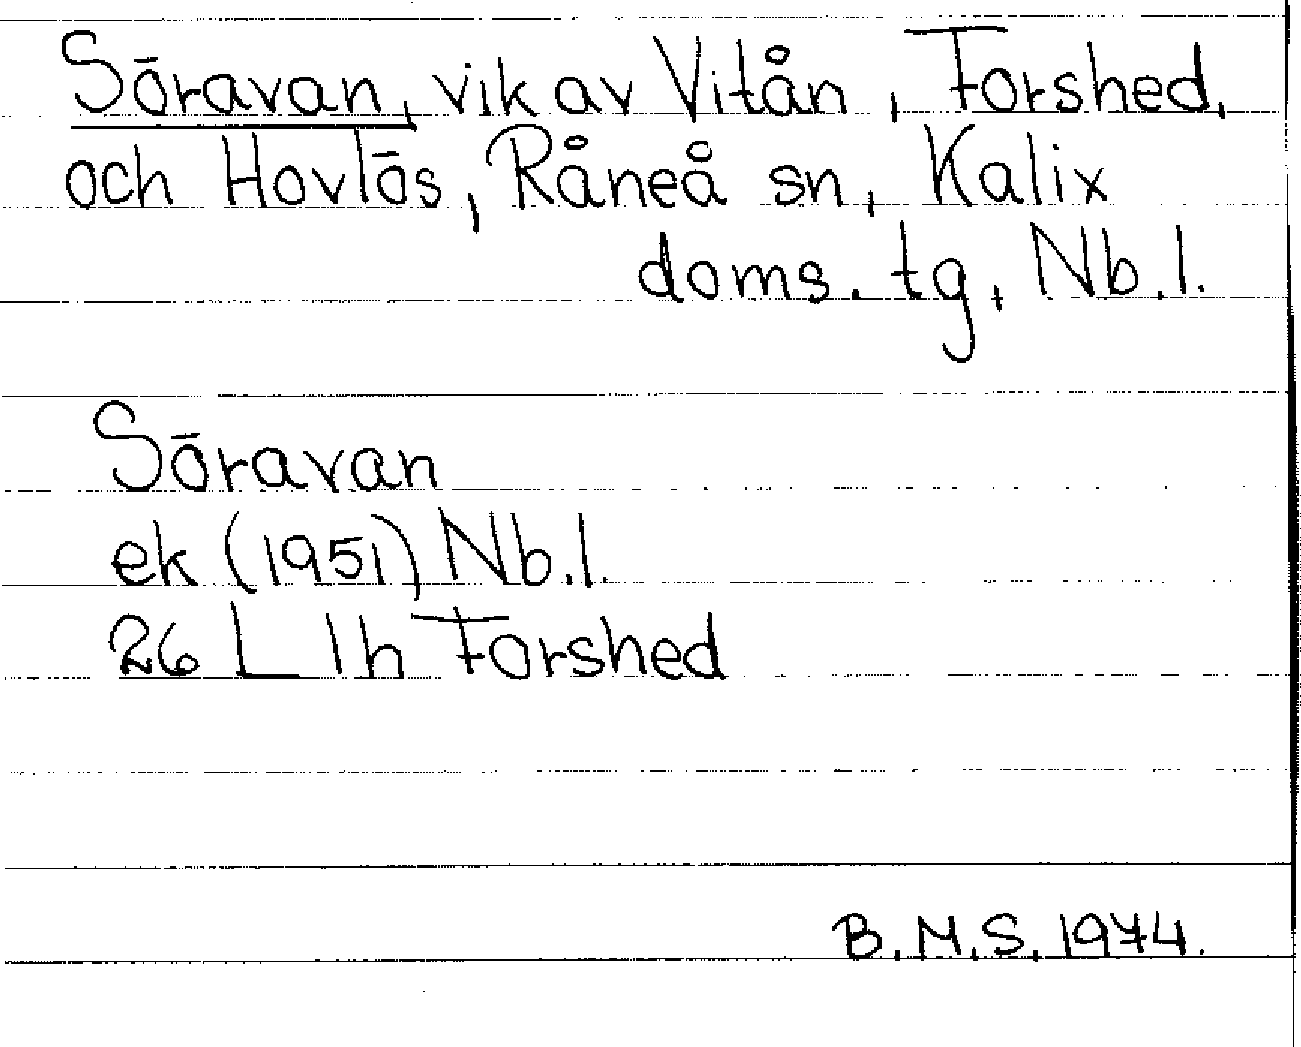 Söravan, vik av Vitån, Forshed,
och Hovlös, Råneå sn, Kalix
doms. tg, Nb.l.
Söravan
ek (1951) Nb.l.
26 L 1h Forshed
B.M.S. 1974.